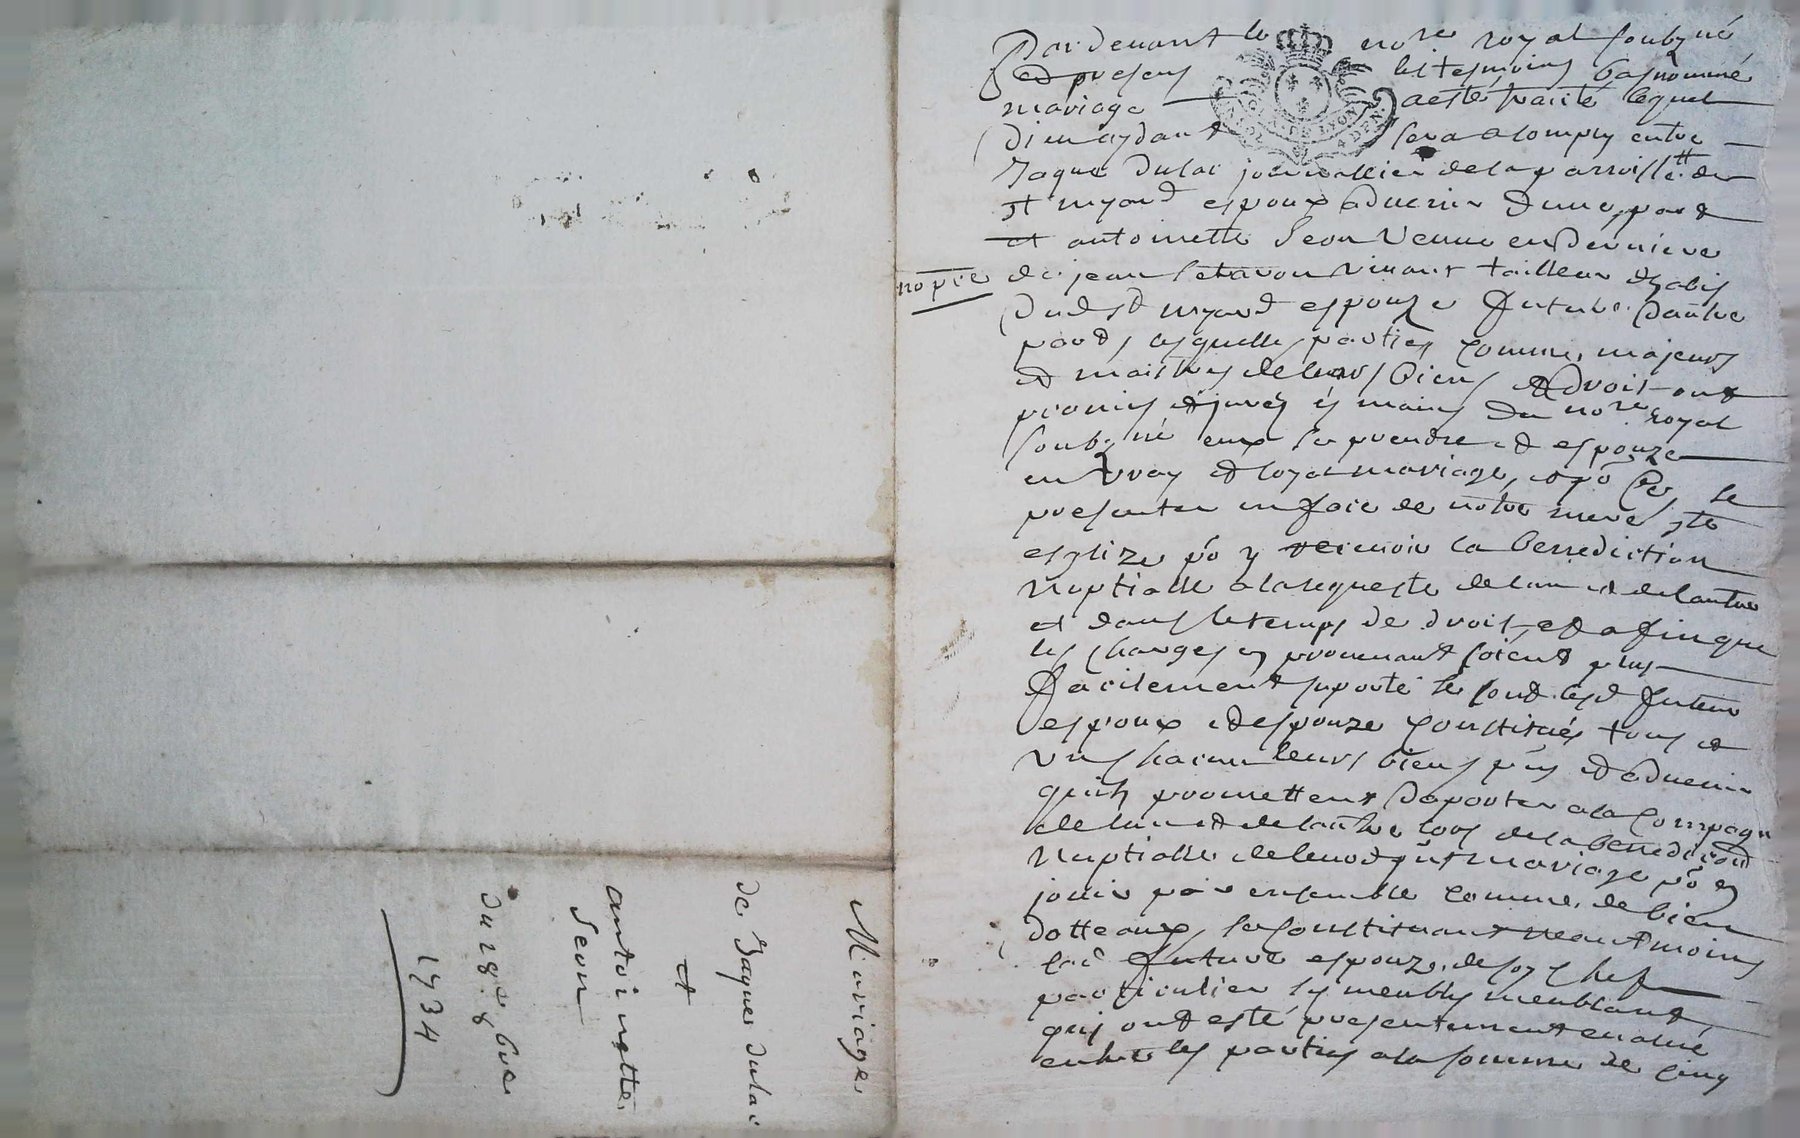 Mariage
de Jaques dulac
et
antoinette
Seon
du 28e 8bre
1734
Pardevant le nore royal soubzné
et presens les tesmoins basnommé
mariage a esté traité lequel
dieu aydant sera acomply entre
Jaque Dulac journallier de la parroisse de
st myard espoux advenir d'une part
et antoinette Seon veuve en derniere
de jean vivant tailleur d'habis
dud st myard espouze future d'autre
part, lesquelles parties comme majeurs
et maistres de leurs biens et droit ont
promis et juré es mains du nore royal
soubzné eux se prendre et espouze
en vray et loyal mariage, et po se
presenter en face de notre mere ste
esglize po y recevoir la benediction
nuptialle a la requeste de l'un et de l'autre
et dans le temps de droit et afin que
les charges en provenant soient plus
facilement suporté se sont lesd futeur
espoux et espouze constitués tous et
un chacun leurs biens pns et advenir
quils promettent d'aporter a la compagn
de l'un et de l'autre lors de la benediction
nuptialle de leurd pnt mariage po en
jouir par ensemble comme de bien
dotteaux, se constituant neantmoins
lad future espouze de son chef
particulier les meubles meublant
qui ont esté presentement evalué
entre les parties a la somme de cinq